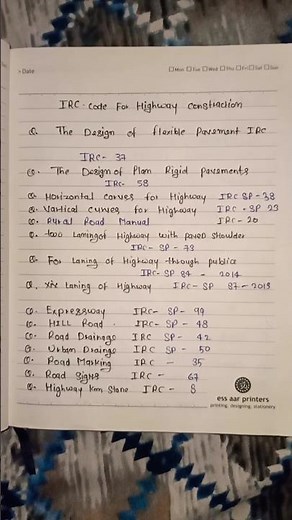 Date
Mon Tue Wed Thu Fri Sat Sun
IRC-Code For Highway Constraction
Q. The Design of flexible Pavement IRC
IRC- 37
Q. The Design of Plan Rigid pavements
IRC- 58
Q. Horizontal carves for Highway IRC SP-38
Q. Vartical curves for Highway IRC - SP 23
Q. Rural Road Manual IRC- 20
Q. two Laming of Highway with paved shoulder
IRC- SP- 73
Q. For Laning of Highway through publia
IRC- SP 84 - 2014
Q. six Laning of Highway IRC- SP 87-2013
Q. Expressway IRC- SP- 99
Q. HILL Road IRC- SP- 48
Q. Road Drainage IRC SP- 42
Q. Urban Drainge IRC SP- 50
Q. Road Marking IRC - 35
Q. Road Signs IRC - 67
Q. Highway Km Stone IRC - 8
ess aar printers
printing, designing, stationery